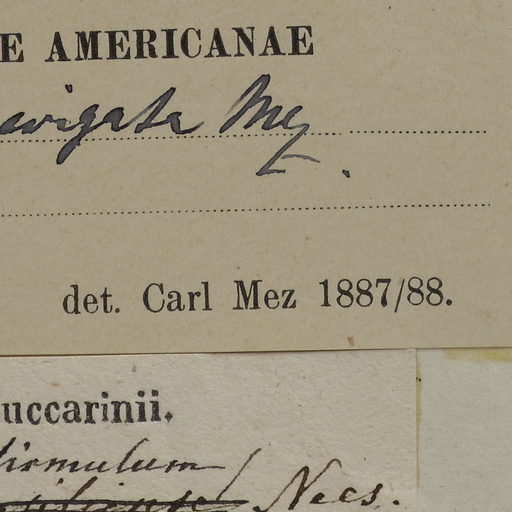 E AMERICANAE
evigata Mez.
det. Carl Mez 1887/88.
uccarinii.
firmulum
Nees.